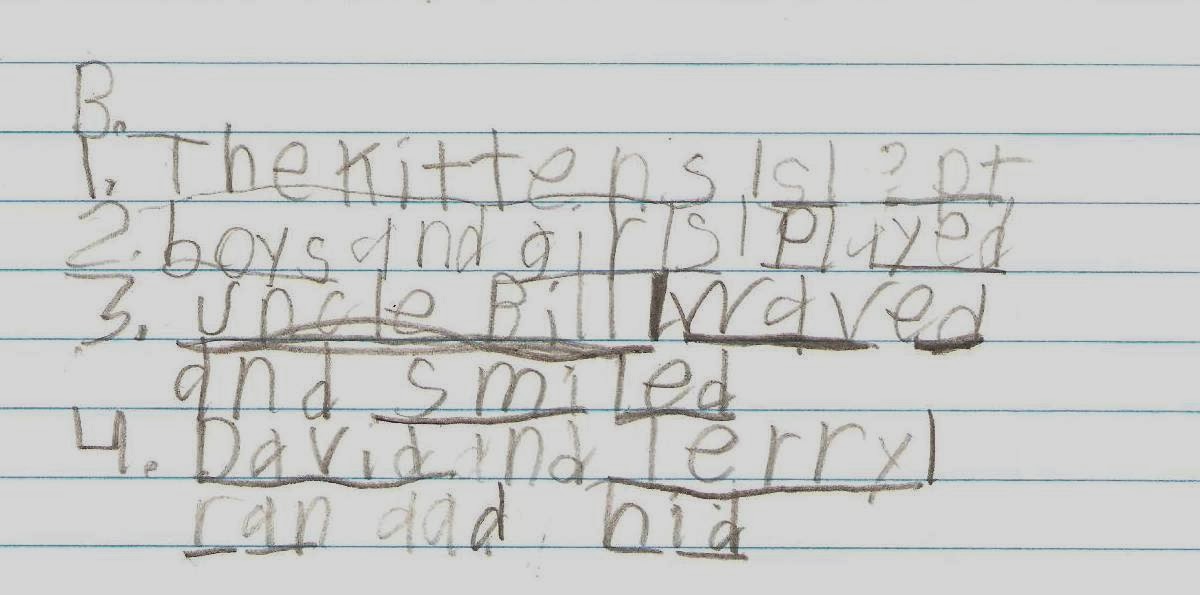 B.
1. The kittens | slept
2. boys and girls | played
3. Uncle Bill | waved
and smiled
4. David and Terry |
ran aad hid